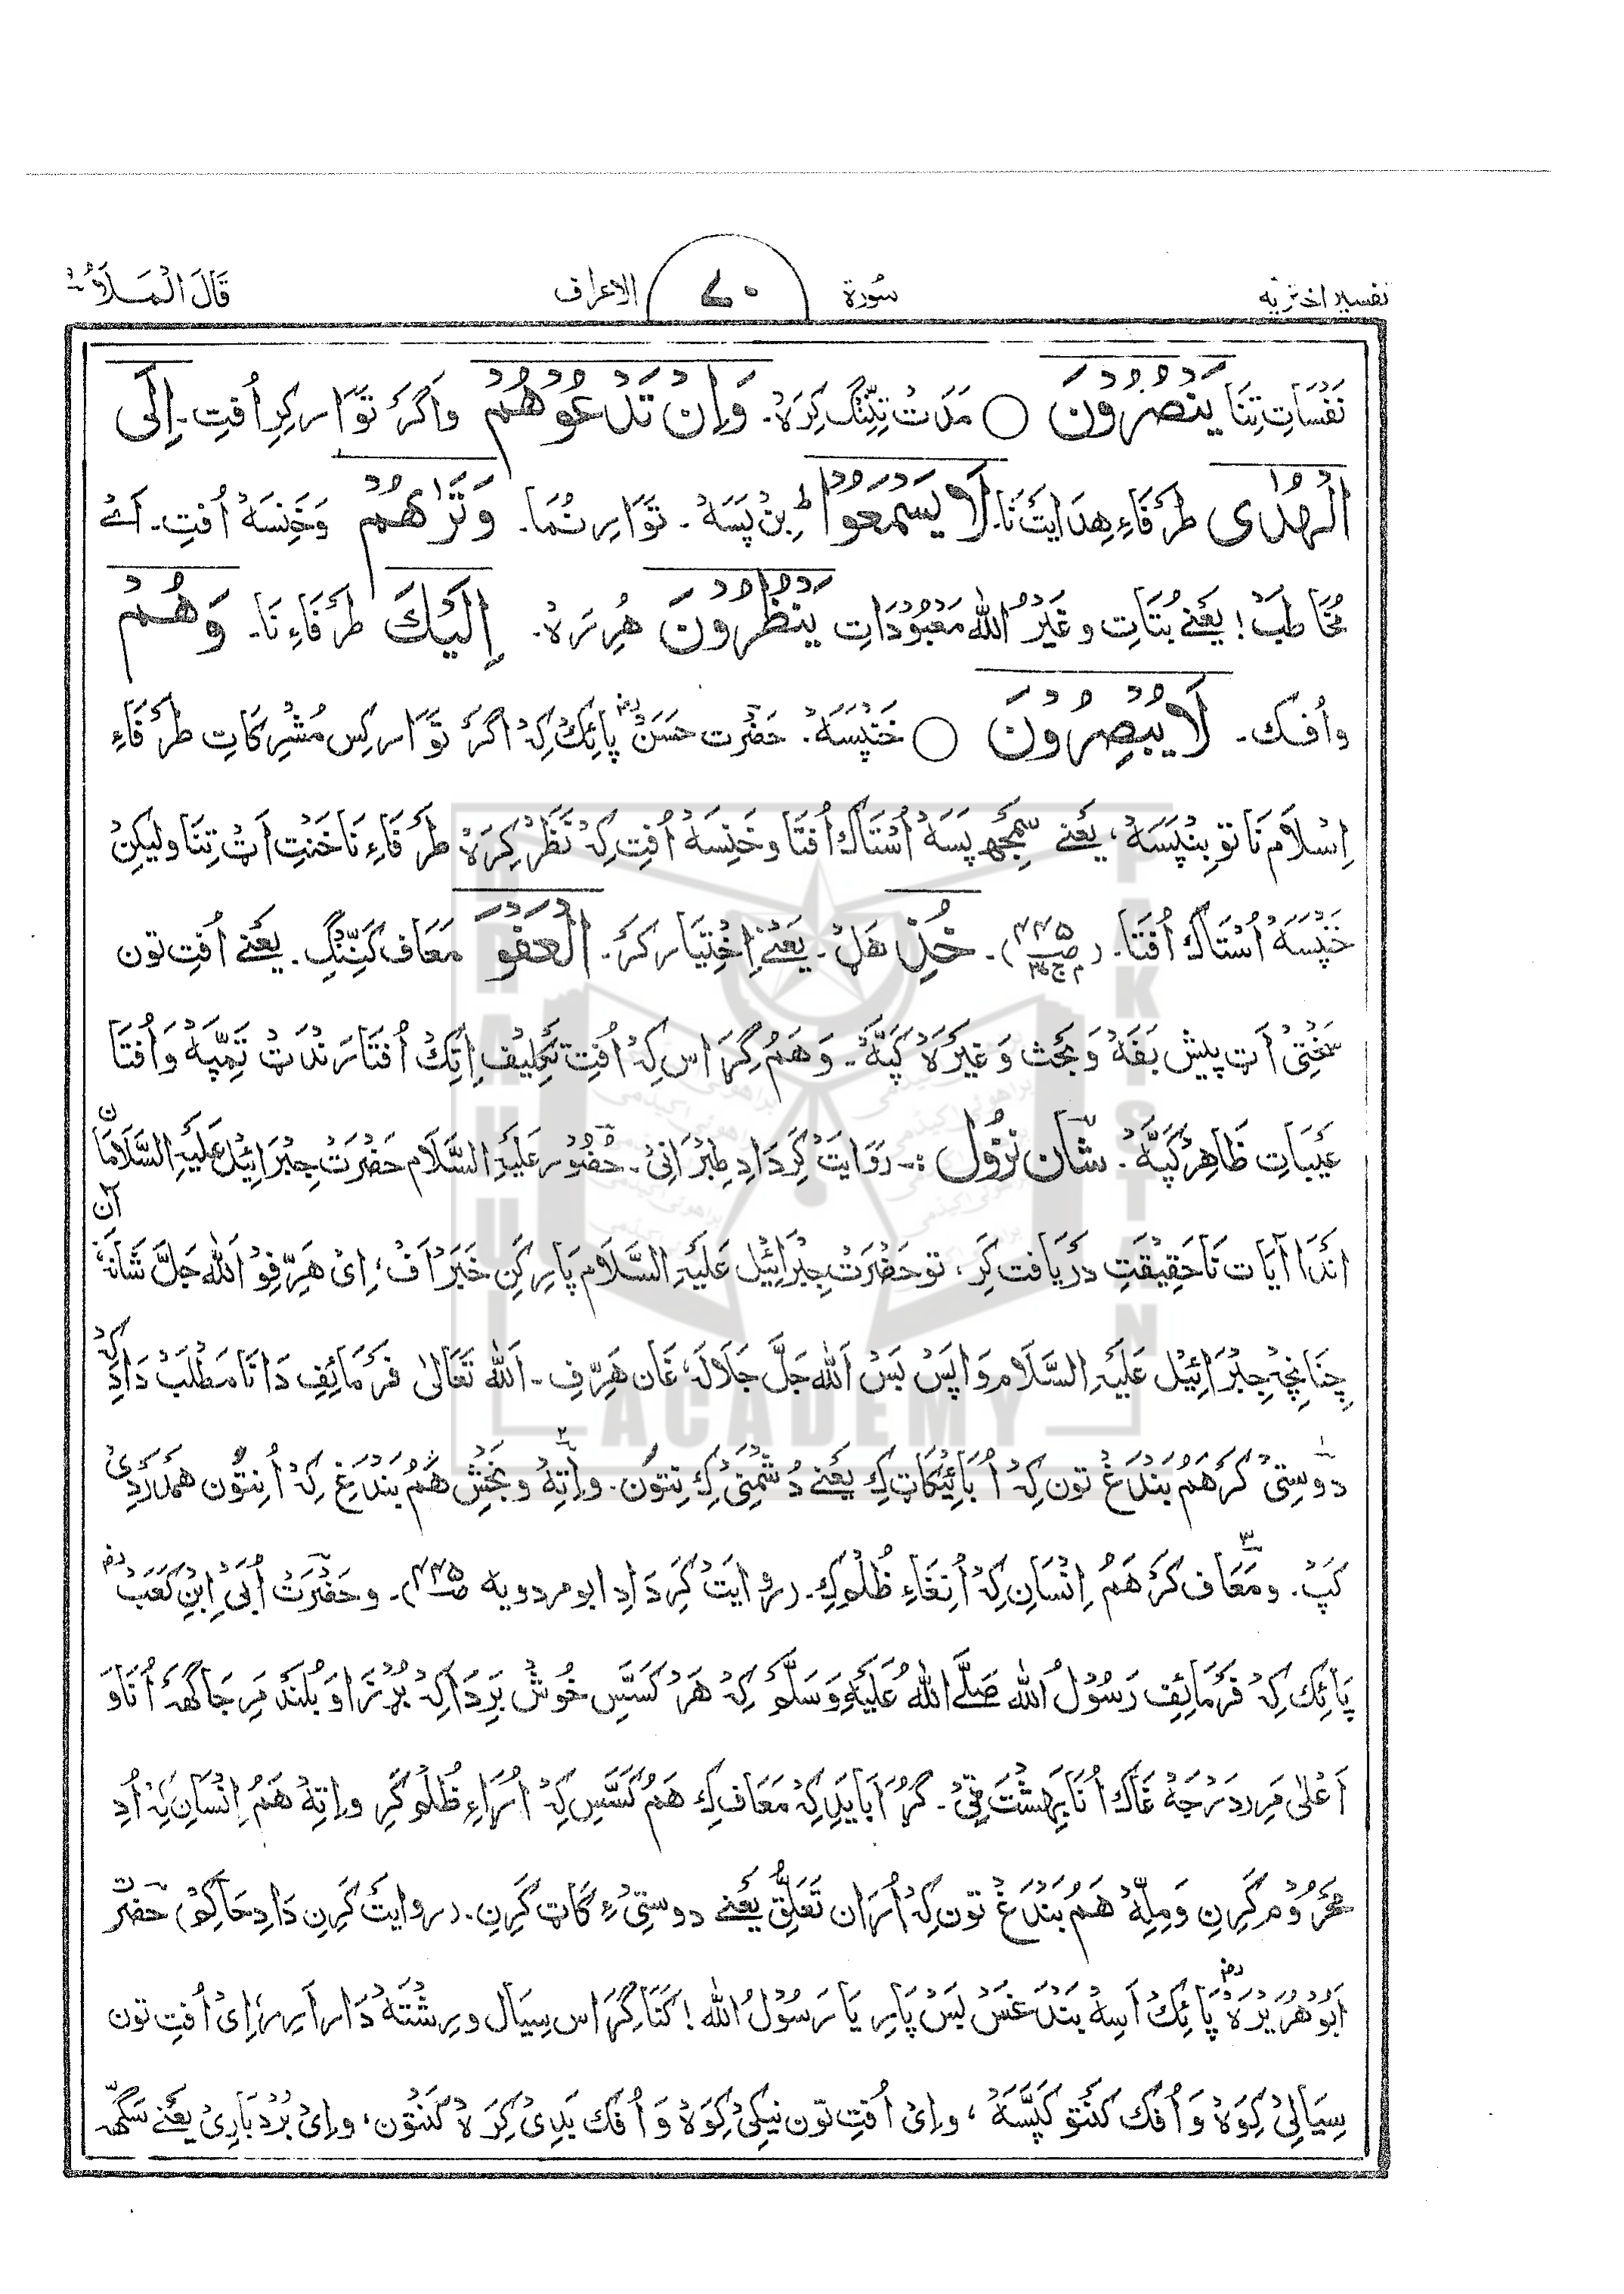 تفسیر اختریه سُورة ۷۰ الاعراف قَالَ الْمَلَاُ ۹
نَفْسَاتِ تِنَا یَنْصُرُوْنَ ○ مَدَتْ تِنِّنْگ کِرَہْ۔ وَاِنْ تَدْعُوْهُمْ وَاگَرْ تَوَّار کِرِ اُفتِ۔ اِلَی
الْهُدٰی طَرْفَاءِ هِدَایَتْ نَا۔ لَا یَسْمَعُوْا ؕ بِنْ پَسَہْ۔ تَوَّارِ نُمَا۔ وَتَرٰىهُمْ وَخَنِسَہْ اُفتِ۔ اَےْ
مُخَاطَبْ! یَعْنے بُتَاتِ و غَیْرُ اللّٰه مَعْبُوْدَاتِ یَنْظُرُوْنَ هُرِرَہْ۔ اِلَیْكَ طَرْفَاءِ نَا۔ وَهُمْ
وَاُفک۔ لَا یُبْصِرُوْنَ ○ خَنْپَسَہْ۔ حَضْرَت حَسَنْ رض پَائِکْ کِہْ اگَرْ تَوَّار کِس مُشْرِکَاتِ طَرْفَاءِ
اِسْلَامْ نَا تو بِنْپَسَہْ، یَعْنے سَمْجِھ پَسَہْ اُسْتَاکْ اُفتَا و خَنِسَہْ اُفتِ کِہْ نَظَرْ کِرَہْ طَرْفَاءِ نَا خَنْتِ اَٹ تِنَا ولیکِنْ
خَنْپَسَہْ اُسْتَاکْ اُفتَا۔ خُذِ هَلْ۔ یَعْنے اِخْتِیَار کَرْ۔ الْعَفْوَ مَعَاف کَنِنّگ۔ یَعْنے اُفتِ تون
سَخْتِیْ اَٹ پیش بَفَہْ وَ بَحْث وَ غَیْرَہْ کَپَّہْ۔ وَهَمْ گِرَاس کِہْ اُفتِ تَکْلِیْف اِتِکْ اُفتَا رَنْدَتْ تَمِّپَہْ وَاُفتَا
عَیْبَاتِ ظَاهِرْ کَپَّہْ۔ شَانِ نُزُوْل :۔ رِوَایَتْ کَرِ دَادِ طِبْرَانِیْ۔ حُضُوْر عَلَیْہِ السَّلَام حَضْرَتْ جِبْرَائِیْل عَلَیْہِ السَّلَامَانْ آن
اَنْدَا آیَات تَا حَقِیْقَتِ دَرْیَافت کَرِ، تو حَضْرَتْ جِبْرَائِیْل عَلَیْہِ السَّلَام پَارِ کَنِ خَبَرْ اَفْ، اِیْ هَرِّفِوْ اَللّٰه جَلَّ شَانَہٗ
چِنَانِچہ جِبْرَائِیْل عَلَیْہِ السَّلَام وَاپَسْ بَسْ اَللّٰه جَلَّ جَلَالَہٗ غَان هَرِّفِ۔ اَللّٰه تَعَالٰی فَرْمَائِفِ دَانَا مَطْلَبْ دَادِ کِہْ
دوستِیْ کَرْ هَمْ بَنْدَغْ تون کِہْ اُ بَائِیْکَاٹ کِ یَعْنے دُشْمَنِیْ کِ نِتوْن۔ و اِتِہْ و بَخْش هَمْ بَنْدَغِ کِہْ اُ نِتوْن هَمْدَرْدِیْ
کَپْ۔ و مَعَاف کَرْ هَمْ اِنْسَانِ کِہْ اُ نِغَاءِ ظُلْم کِ۔ (روایَتْ کَرِ دَادِ ابو مردویه ). و حَضْرَتْ اُبَیْ اِبْنِ کَعَبْ رض
پَائِکْ کِہْ فَرْمَائِفِ رَسُوْلُ اللّٰه صَلَّی اللّٰهُ عَلَیْهِ وَسَلَّمَ کِہْ هَرْ کَسَّسِ خُوشْ بَرِ دَا کِہْ بُرْزَا و بُلَنْد مَرِ جَاگَہْ اُنَا وَ
اَعْلٰی مَرِ دَرْجَہْ غَاکْ اُنَا بَہِشْتَ ٹِیْ۔ گُرَا بَایَدِ کِہْ مَعَاف کِ هَمْ کَسَّسِ کِہْ اُرَاءِ ظُلْم کَرِ و اِتِہْ هَمْ اِنْسَانِ کِہْ اُدِ
مَحْرُوْم کَرِنِ وَ مِلِہْ هَمْ بَنْدَغْ تون کِہْ اُرَان تَعَلُّق یَعْنے دوستِیْءِ کَاٹ کَرِنِ۔ (روایَتْ کَرِنِ دَادِ حَاکِمْ) حَضْرَت
اَبُوْهُرَیْرَہْ رض پَائِکْ اَسِہْ بَنْدَغَسْ بَسْ پَارِ یَا رَسُوْلُ اللّٰه! کَنَا گِرَاس سِیَال و رِشْتَہْ دَار اَرِرْ، اِیْ اُفتِ تون
سِیَالِیْ کِوَہْ وَ اُفک کَنْتو کَپَّسَہْ، و اِیْ اُفتِ تون نیکِیْ کِوَہْ وَ اُفک بَدِیْ کِرَہْ کَنْتون، و اِیْ بُرْدْبَارِیْ یَعْنے سَگھّ